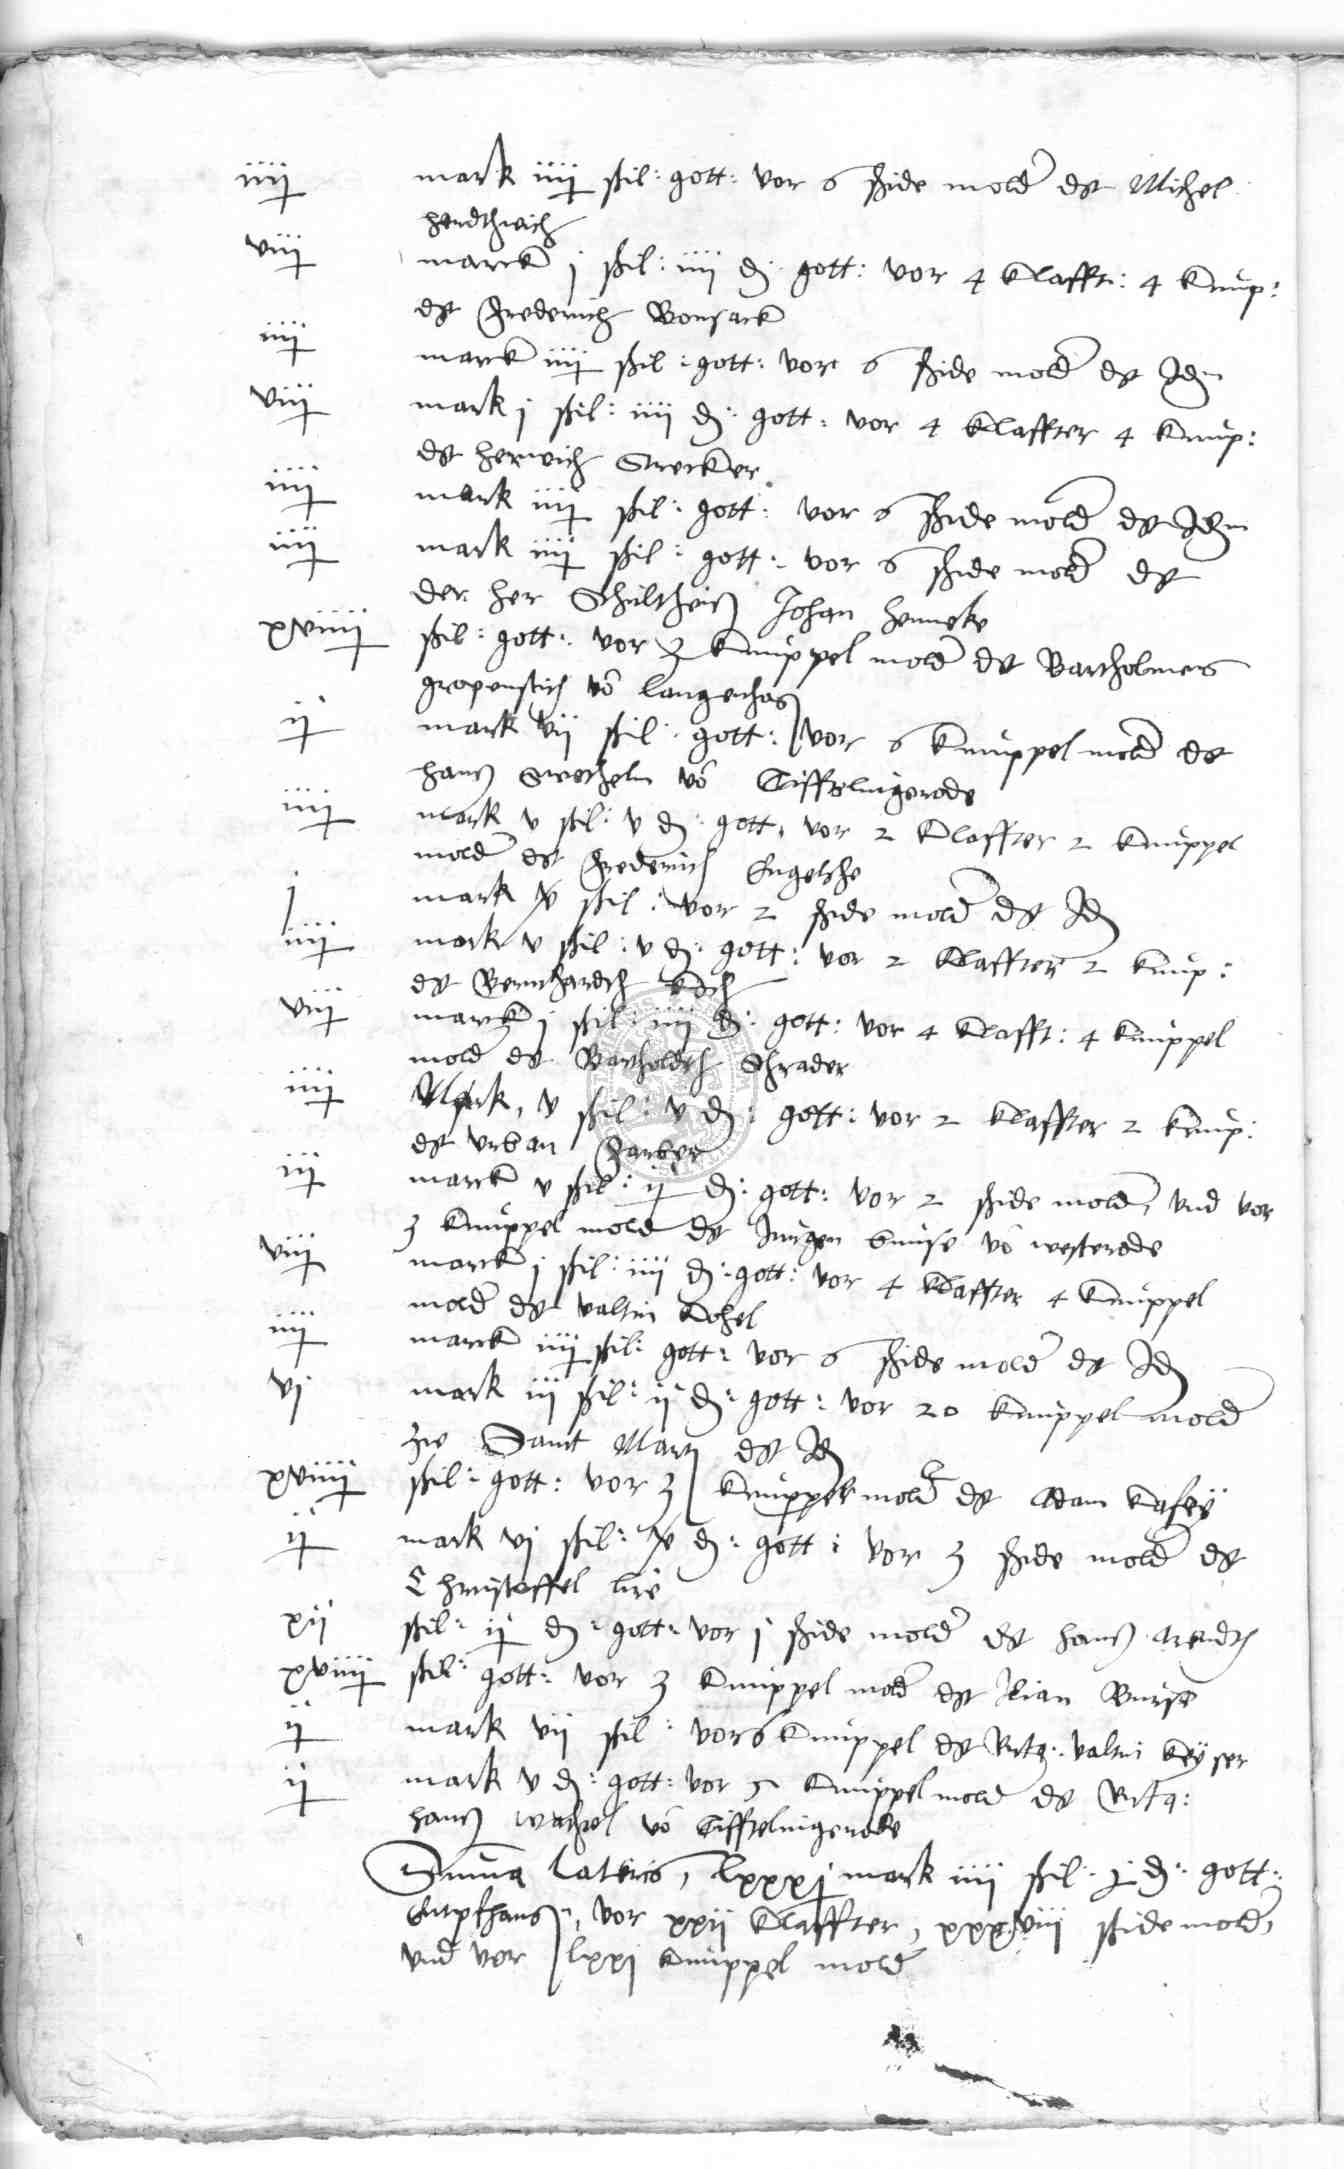 iiii mark iiii ßil: gott: vor 6 ßide mold dt Michel
hendthrich
viii marck j ßil: iiii d: gott: vor 4 Klafft: 4 Knup:
dt Frederich Bonsack
iiii marck iiii ßil: gott: vor 6 ßide mold dt Idm
viii mark j ßil: iiii d: gott: vor 4 Klaffter 4 Knup:
dt herwich Strecker
iiii mark iiii ßil: gott: vor 6 ßide mold dt Idm
iiii mark iiii ßil: gott: vor 6 ßide mold dt
der her Schultheiß Johan Henneke
xviiii ßil: gott: vor 3 Knuppel mold dt Bartholmeus
vō langenhag
ii mark vii ßil: gott: vor 6 Knuppel mold dt
hanß vō Tifftelingerode
iiii mark v ßil: v d: gott: vor 2 Klaffter 2 Knuppel
mold dt Frederich Engelche
j mark x ßil: vor 2 ßide mold dt Id
iiii mark v ßil: v d: gott: vor 2 Klaffter 2 Knup:
dt Bernhardth Koch
viii marck j ßil: iiii d: gott: vor 4 Klafft: 4 Knuppel
mold dt Bartholdth Schrader
iiii Mark, v ßil: v d: gott: vor 2 Klaffter 2 Knup:
dt vrban Farber
iii marck v ßil: ii d: gott: vor 2 ßide mold, vnd vor
3 Knuppel mold dt Jurgen vō westerode
viii marck j ßil: iiii d: gott: vor 4 Klaffter 4 Knuppel
mold dt valtin Kohel
iiii marck iiii ßil: gott: vor 6 ßide mold dt Id
vj mark iii ßil: ii d: gott: vor 20 Knuppel mold
zw Sant Mart dt Id
xviiii ßil: gott: vor 3 Knuppel mold dt Adam Kasey
ii mark vj ßil: x d: gott: vor 3 ßide mold dt
Christoffel
xii ßil: ii d: gott: vor j ßide mold dt hanß Arendth
xviiii ßil: gott: vor 3 Knuppel mold dt Ilian Bunse
ii mark vii ßil: vor 6 Knuppel dt valtin Keyser
ii mark v d: gott: vor 5 Knuppel mold dt
hanß vō Tifftelingerode
Summa lateris, lxxxj mark iiii ßil: j d: gott:
vor xxii Klaffter, xxxviii ßide mold,
vnd vor lxxj Knuppel mold